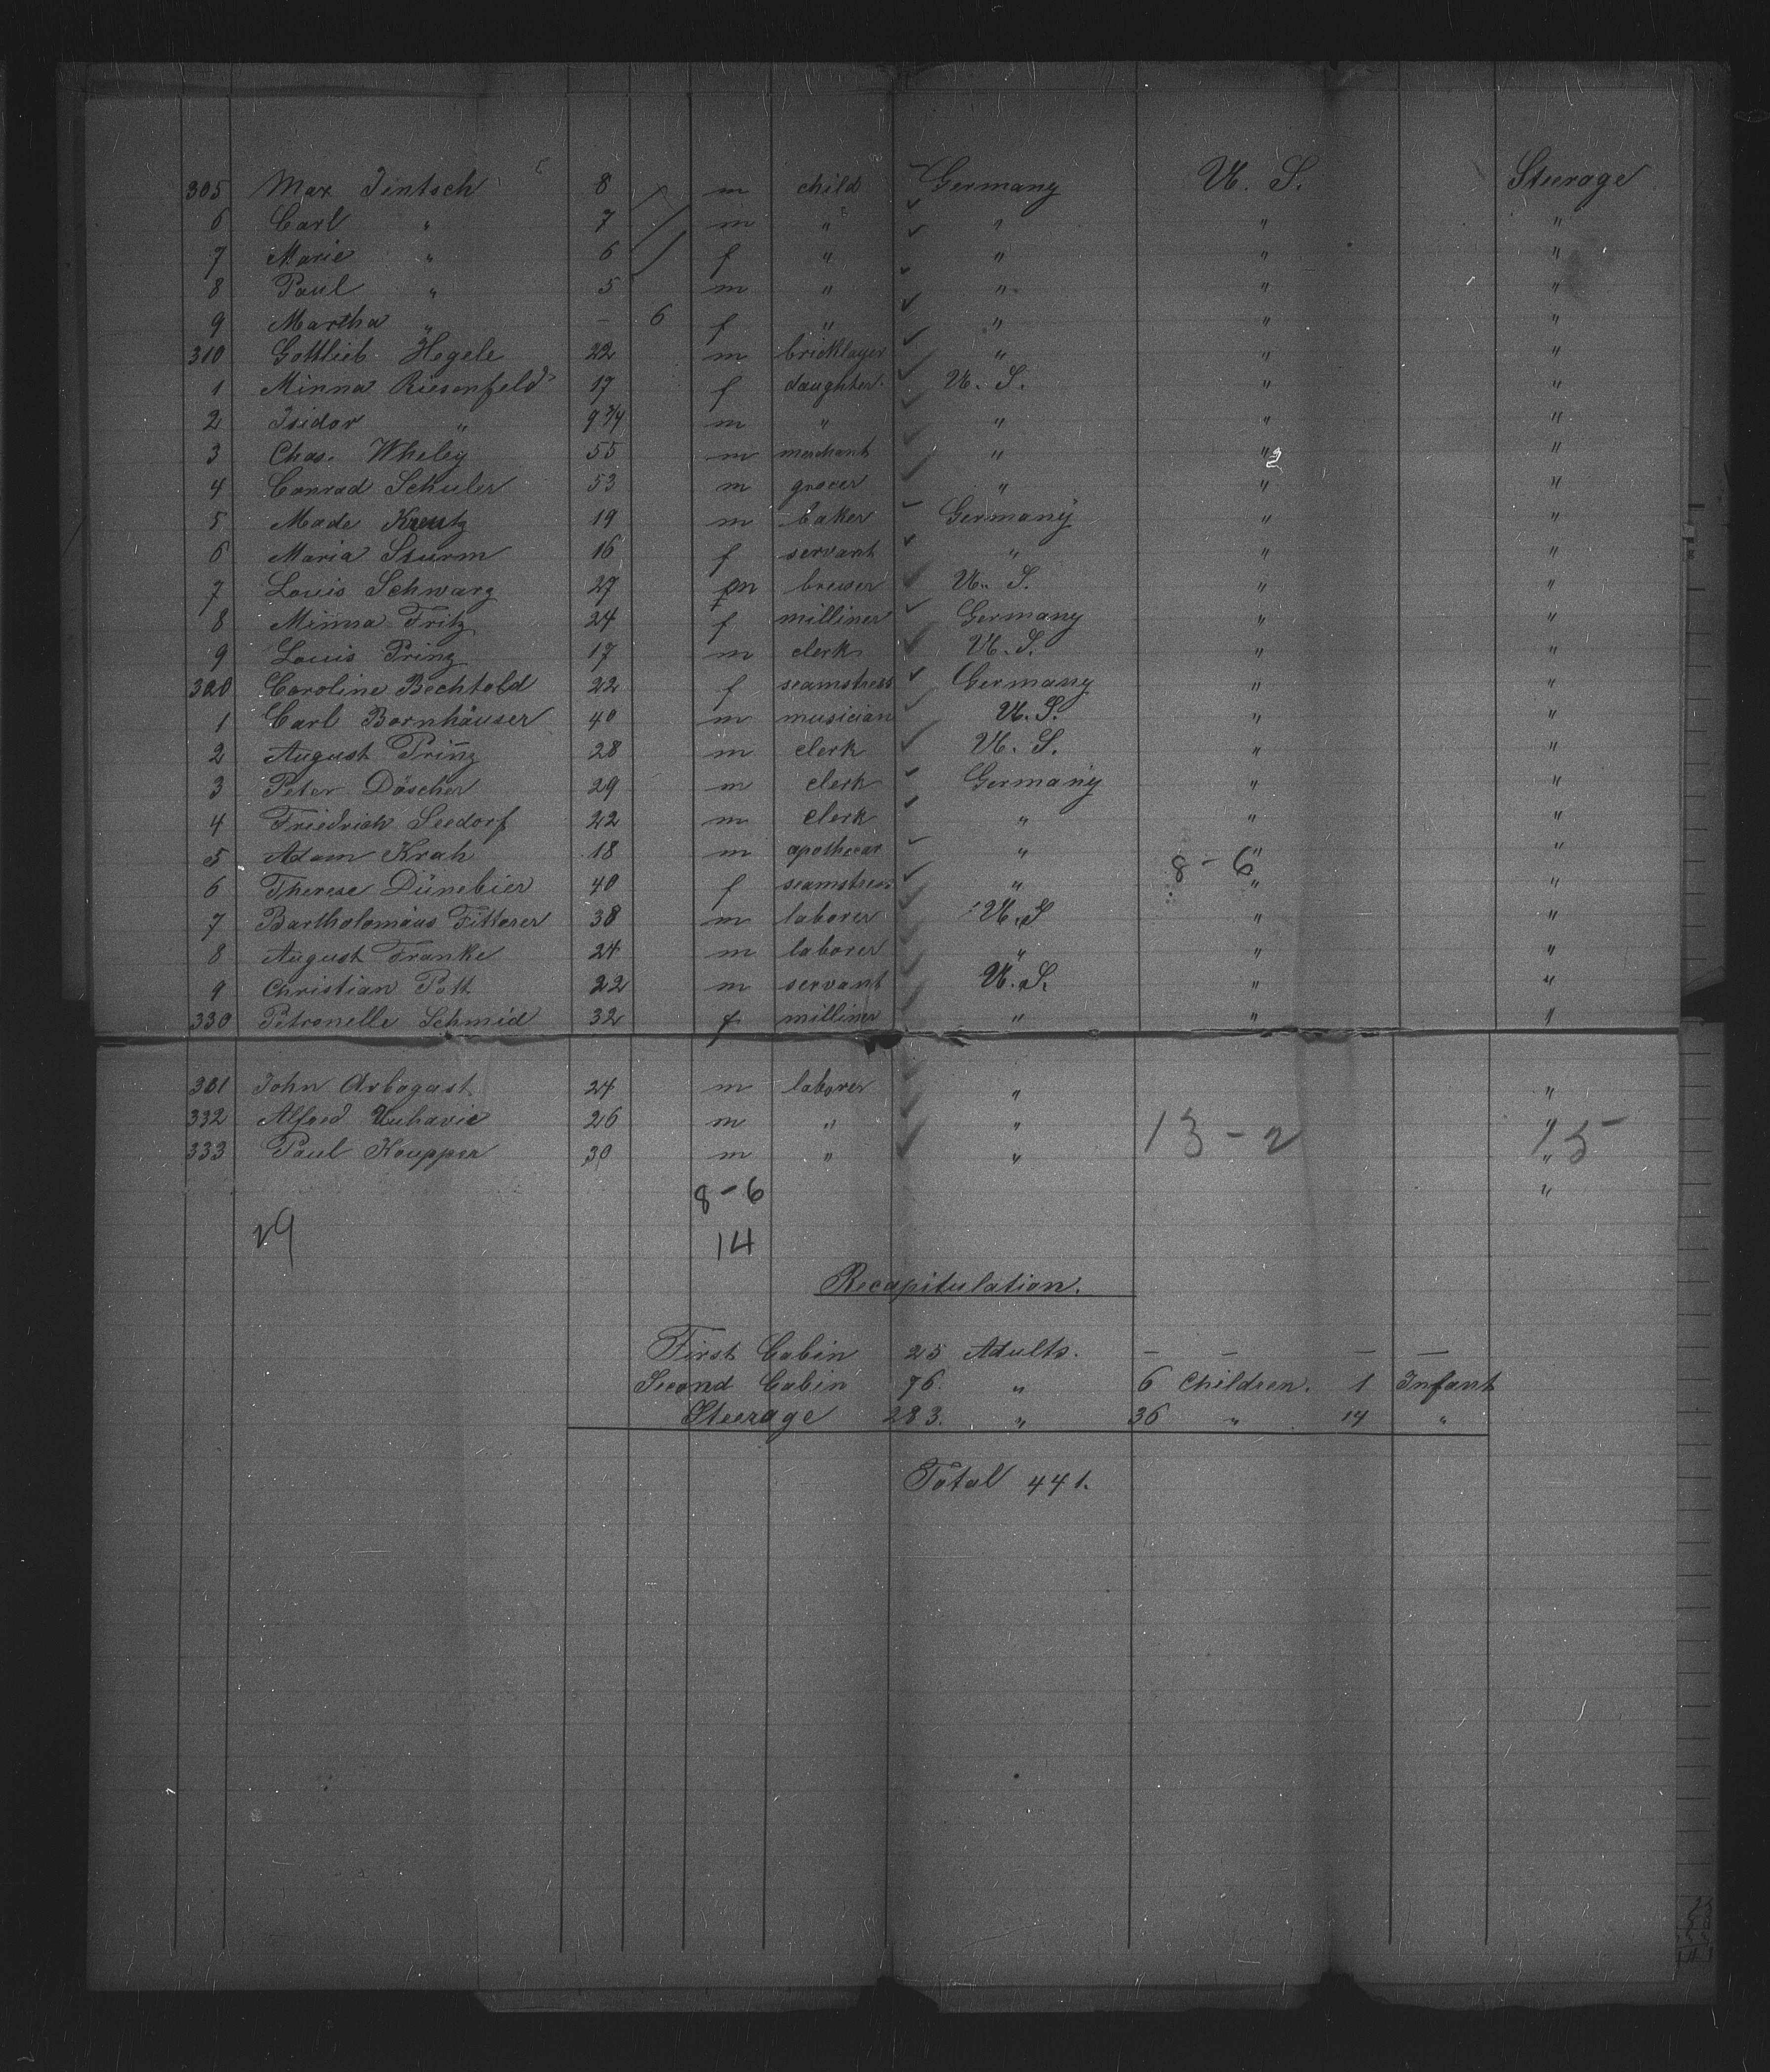 305 Max Jentsch 8 m child Germany U. S. Steerage
6 Carl " 7 m " " " "
7 Marie " 6 f " " " "
8 Paul " 5 m " " " "
9 Martha " – 6 f " " " "
310 Gottlieb Hegele 22 m bricklayer " " "
1 Minna Riesenfeld 17 f daughter U. S. " "
2 Isidor " 9 3/4 m " " " "
3 Chas. Wheley 55 m merchant " " "
4 Conrad Schuler 53 m grocer " " "
5 Made Kreutz 19 m baker Germany " "
6 Maria Sturm 16 f servant " " "
7 Louis Schwarz 27 m brewer U. S. " "
8 Minna Fritz 24 f milliner Germany " "
9 Louis Prinz 17 m clerk U. S. " "
320 Caroline Bechtold 22 f seamstress Germany " "
1 Carl Bornhäuser 40 m musician U. S. " "
2 August Prinz 28 m clerk U. S. " "
3 Peter Döscher 29 m clerk Germany " "
4 Friedrich Seedorf 22 m clerk " " "
5 Adam Krah 18 m apothecar " " "
8 – 6
6 Therese Dünebier 40 f seamstress " " "
7 Bartholomäus Fitterer 38 m laborer U. S " "
8 August Franke 24 m laborer " " "
9 Christian Pott 22 m servant U. S. " "
330 Petronelle Schmid 32 f milliner " " "
301 John Arbogast 24 m laborer " "
332 Alfred 26 m " " "
333 Paul Kaupper 30 m " " 13 – 2 " 15
8 – 6 "
29 14
Recapitulation.
First Cabin 25 Adults. – – – –
Second Cabin 76. " 6 Children. 1 Infant
Steerage 283. " 36 " 14 "
Total 441.